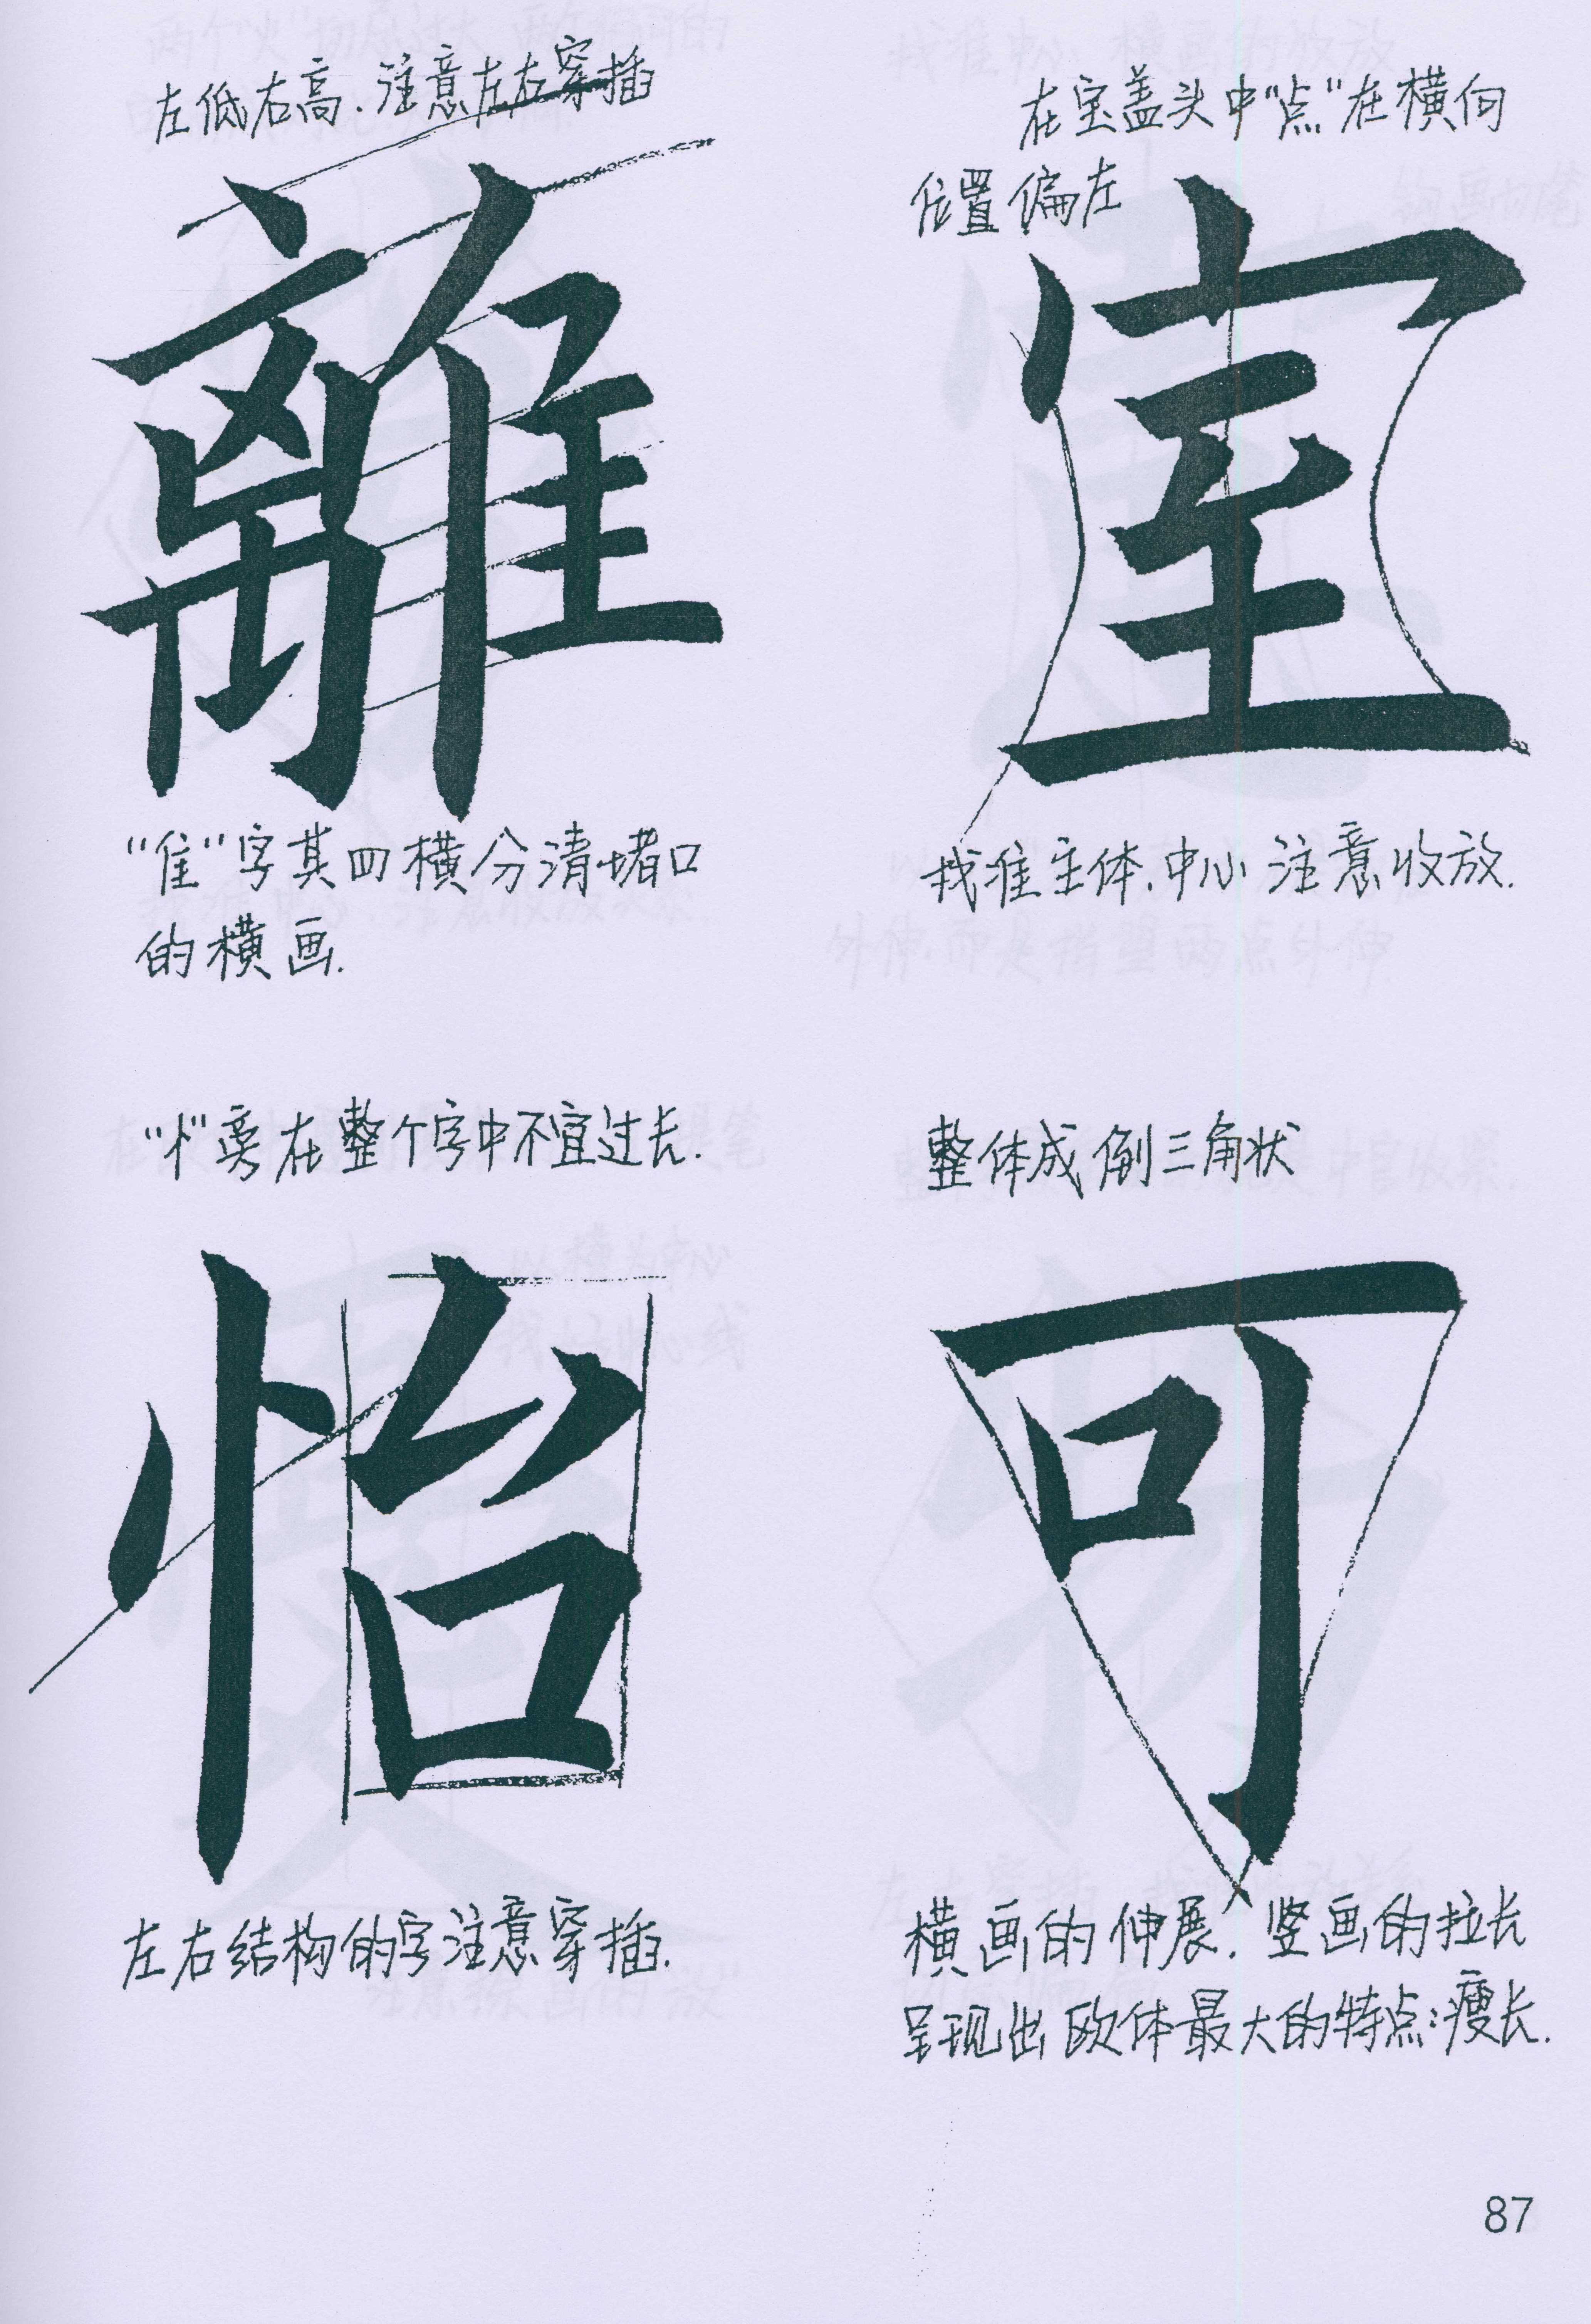 左低右高.注意左右穿插
離
"隹"字其四横分清堵口
的横画.
在宝盖头中"点"在横向
位置偏左
室
找准主体.中心 注意收放.
"忄"旁在整个字中不宜过长.
怡
左右结构的字注意穿插.
整体成倒三角状
可
横画的伸展.竖画的拉长
呈现出欧体最大的特点:瘦长.
87